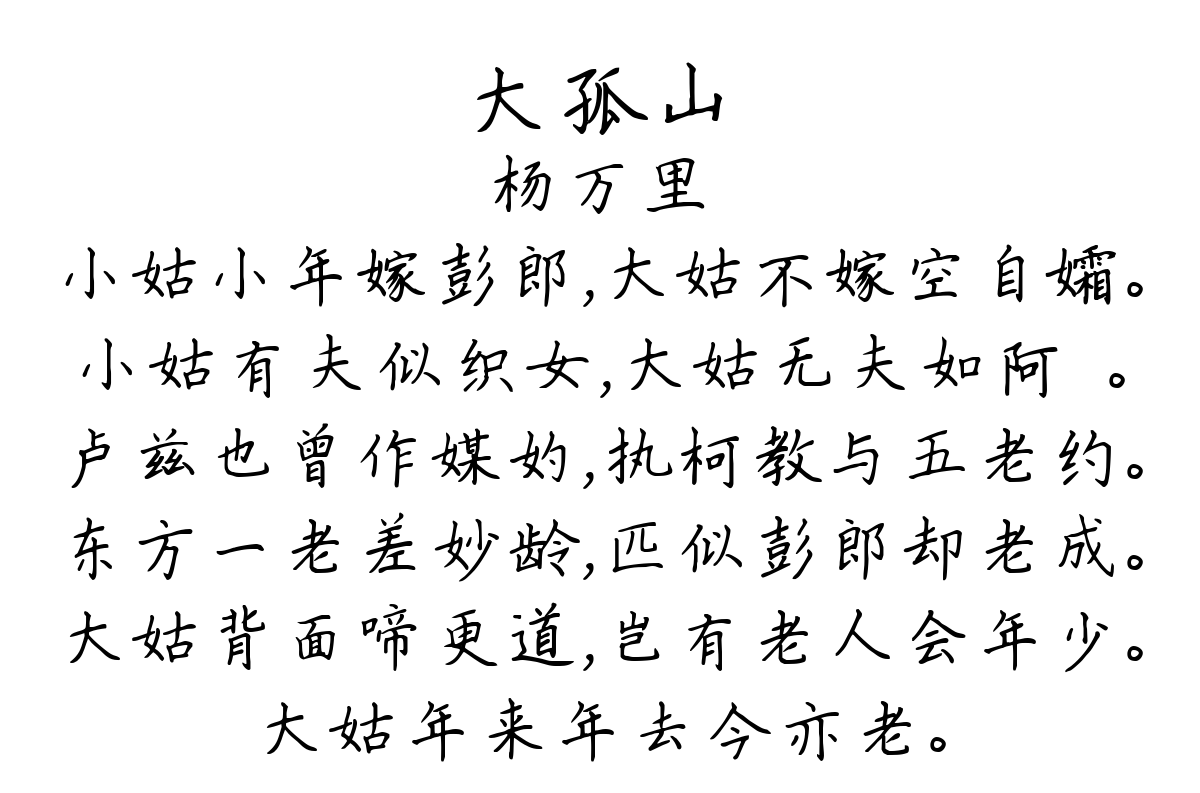 大孤山
杨万里
小姑小年嫁彭郎,大姑不嫁空自孀。
小姑有夫似织女,大姑无夫如阿 。
卢兹也曾作媒妁,执柯教与五老约。
东方一老差妙龄,匹似彭郎却老成。
大姑背面啼更道,岂有老人会年少。
大姑年来年去今亦老。